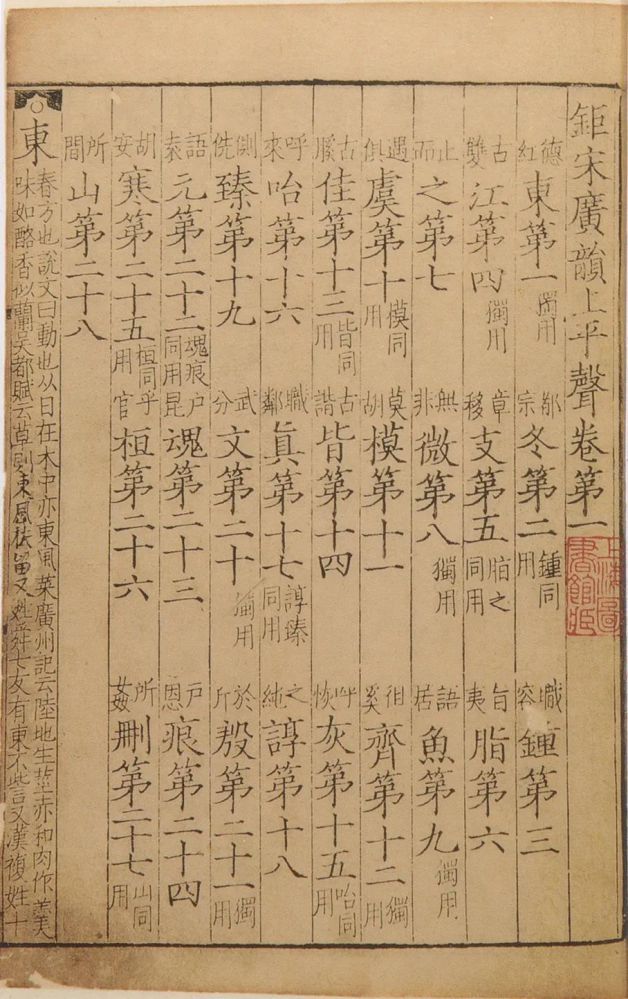 鉅宋廣韻上平聲卷第一
德紅東第一獨用 都宗冬第二鍾同用 職容鍾第三
古雙江第四獨用 章移支第五脂之同用 旨夷脂第六
止而之第七 無非微第八獨用 語居魚第九獨用
遇俱虞第十模同用 莫胡模第十一 徂奚齊第十二獨用
古膎佳第十三皆同用 古諧皆第十四 呼恢灰第十五咍同用
呼來咍第十六 職鄰眞第十七諄臻同用 之純諄第十八
側侁臻第十九 武分文第二十獨用 於斤殷第二十一獨用
語袁元第二十二魂痕同用 户昆魂第二十三 户恩痕第二十四
胡安寒第二十五桓同用 乎官桓第二十六 所姦刪第二十七山同用
所間山第二十八
東
春方也說文曰動也从日在木中亦東風菜廣州記云陸地生莖赤和肉作羹
味如酪香似蘭吳都賦云草則東風扶留又姓舜七友有東不訾又漢複姓十
上海圖
書館藏